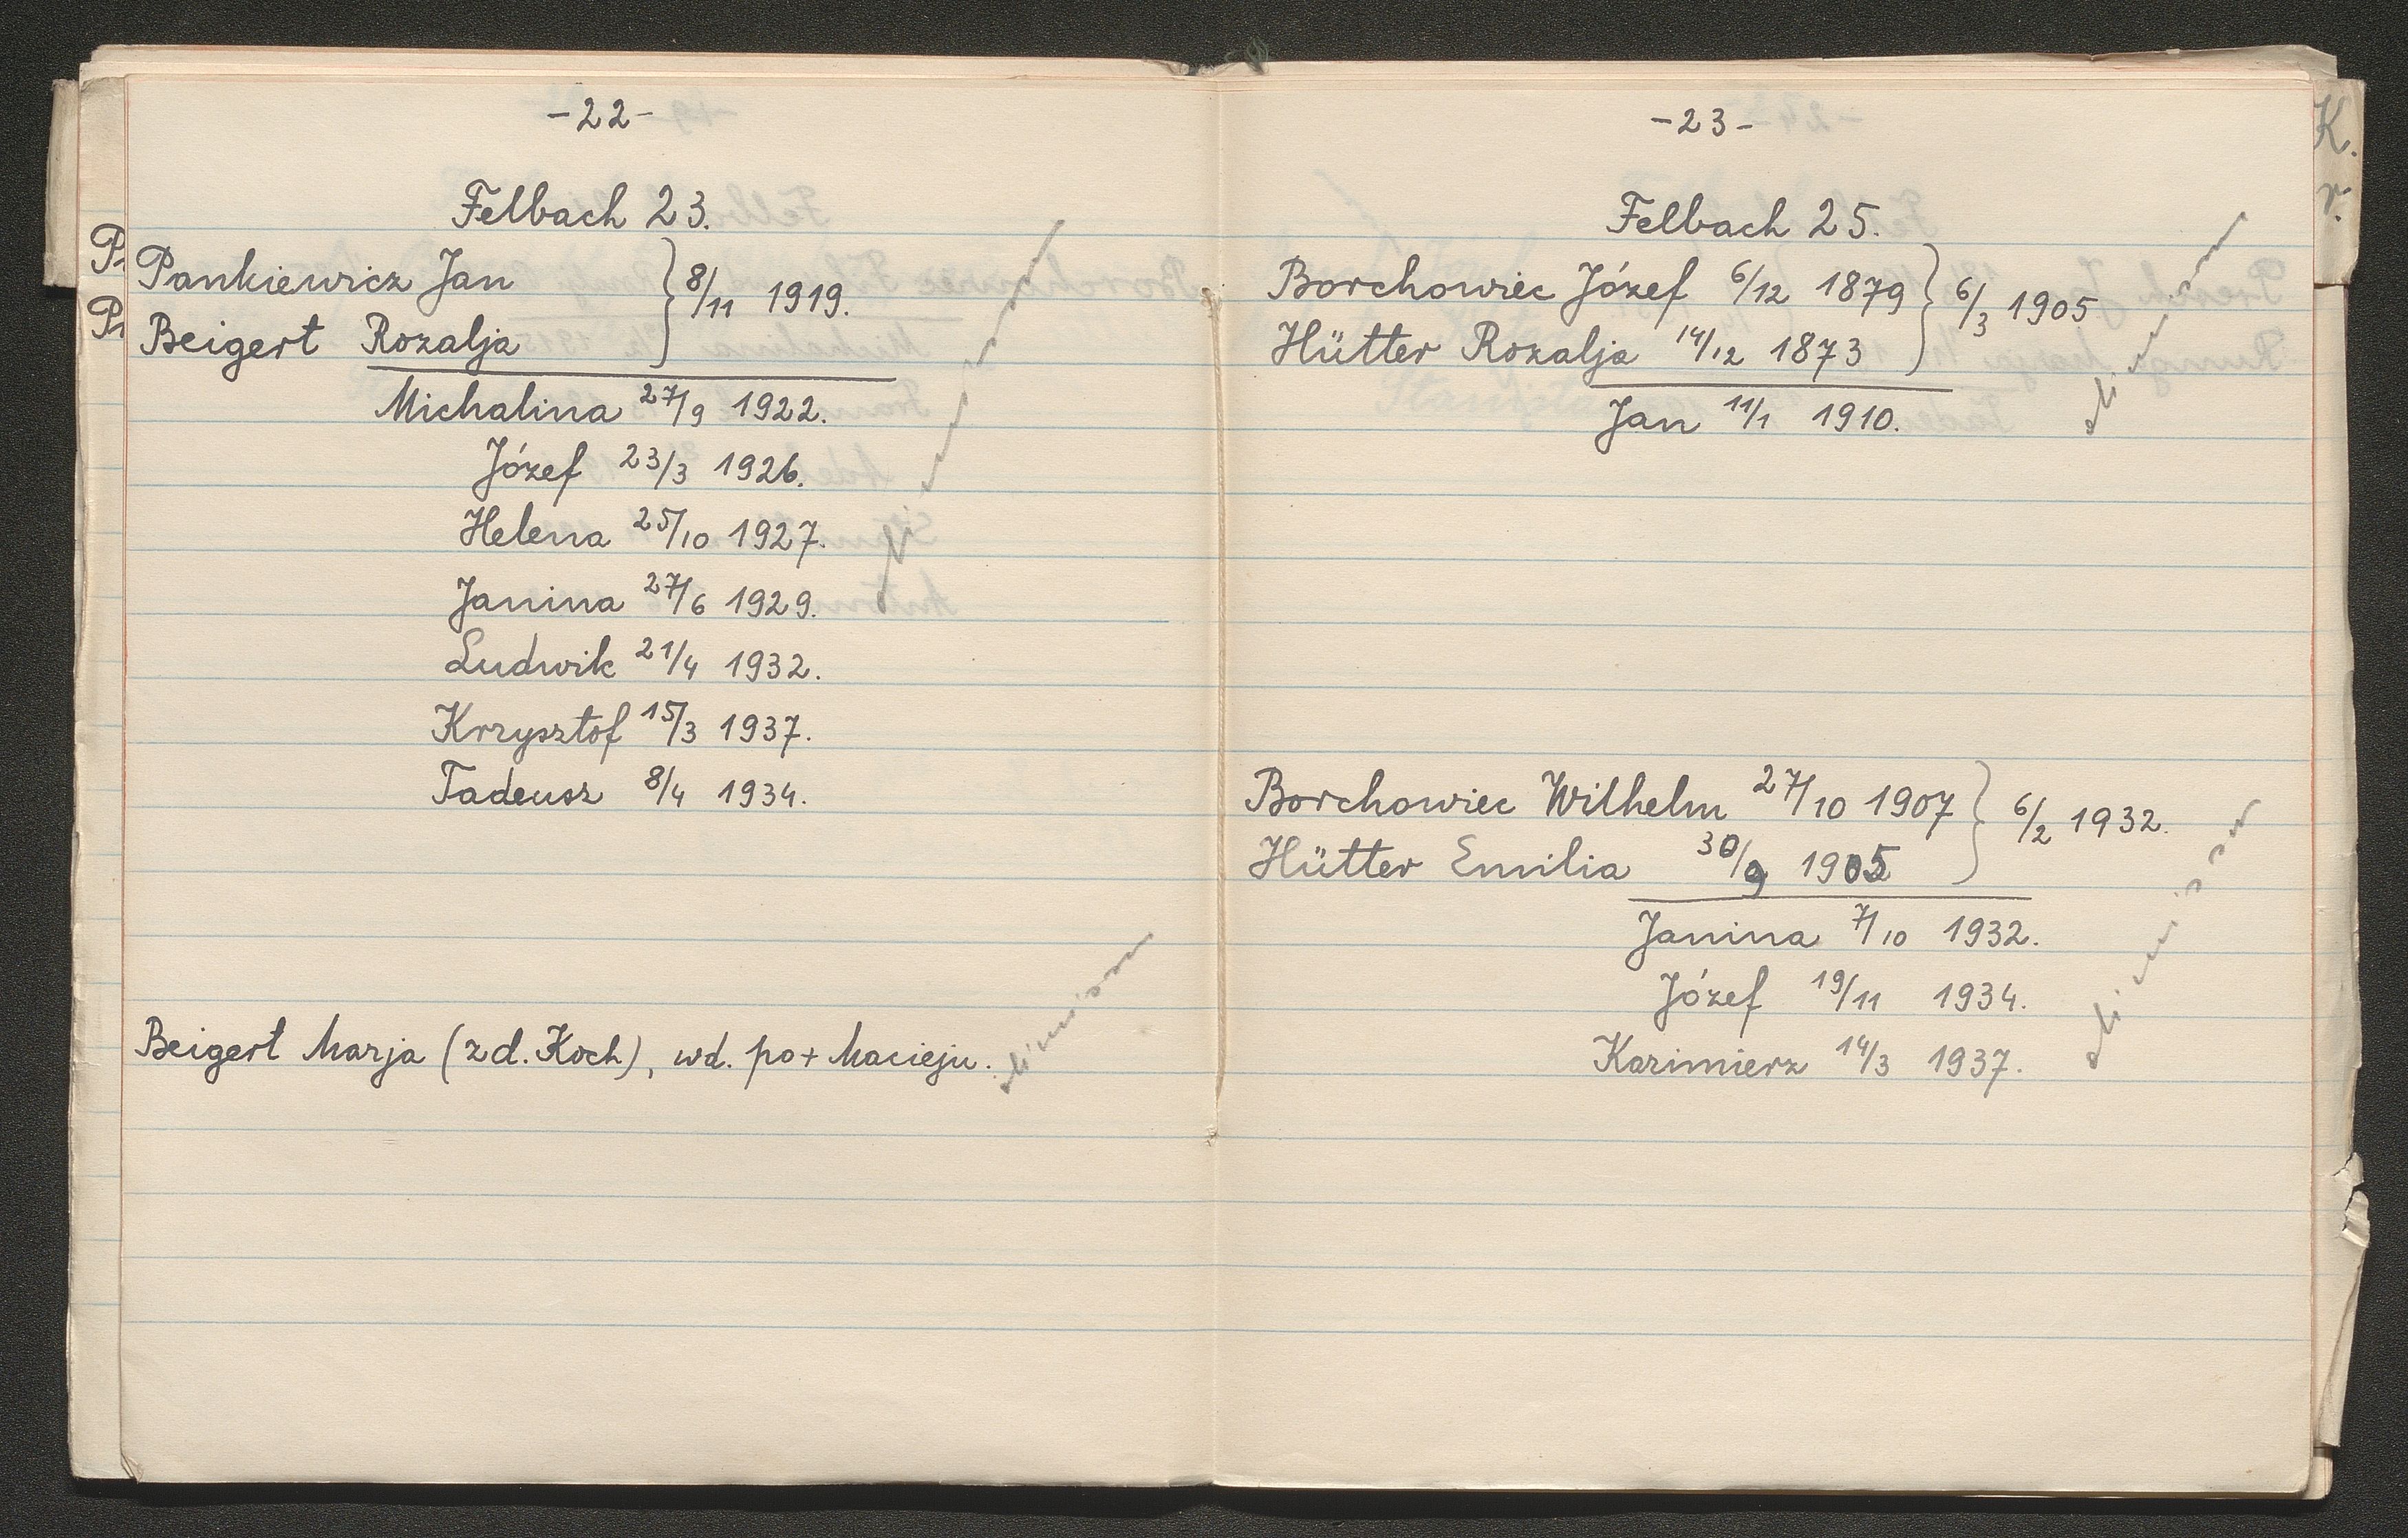 -22-
Felbach 23.
Pankiewicz Jan } 8/11 1919.
Beigert Rozalja
Michalina 27/9 1922.
Józef 23/3 1926.
Helena 25/10 1927.
Janina 27/6 1929.
Ludwik 21/4 1932.
Krzysztof 15/3 1937.
Tadeusz 8/4 1934.
Beigert Marja (z d. Koch), wd. po + Macieju.
-23-
Felbach 25.
Borchowiec Józef 6/12 1879 } 6/3 1905
Hütter Rozalja 14/12 1873
Jan 11/1 1910.
Borchowiec Wilhelm 27/10 1907 } 6/2 1932.
Hütter Emilia 30/9 1905
Janina 7/10 1932.
Józef 19/11 1934.
Kazimierz 14/3 1937.
K.
r.